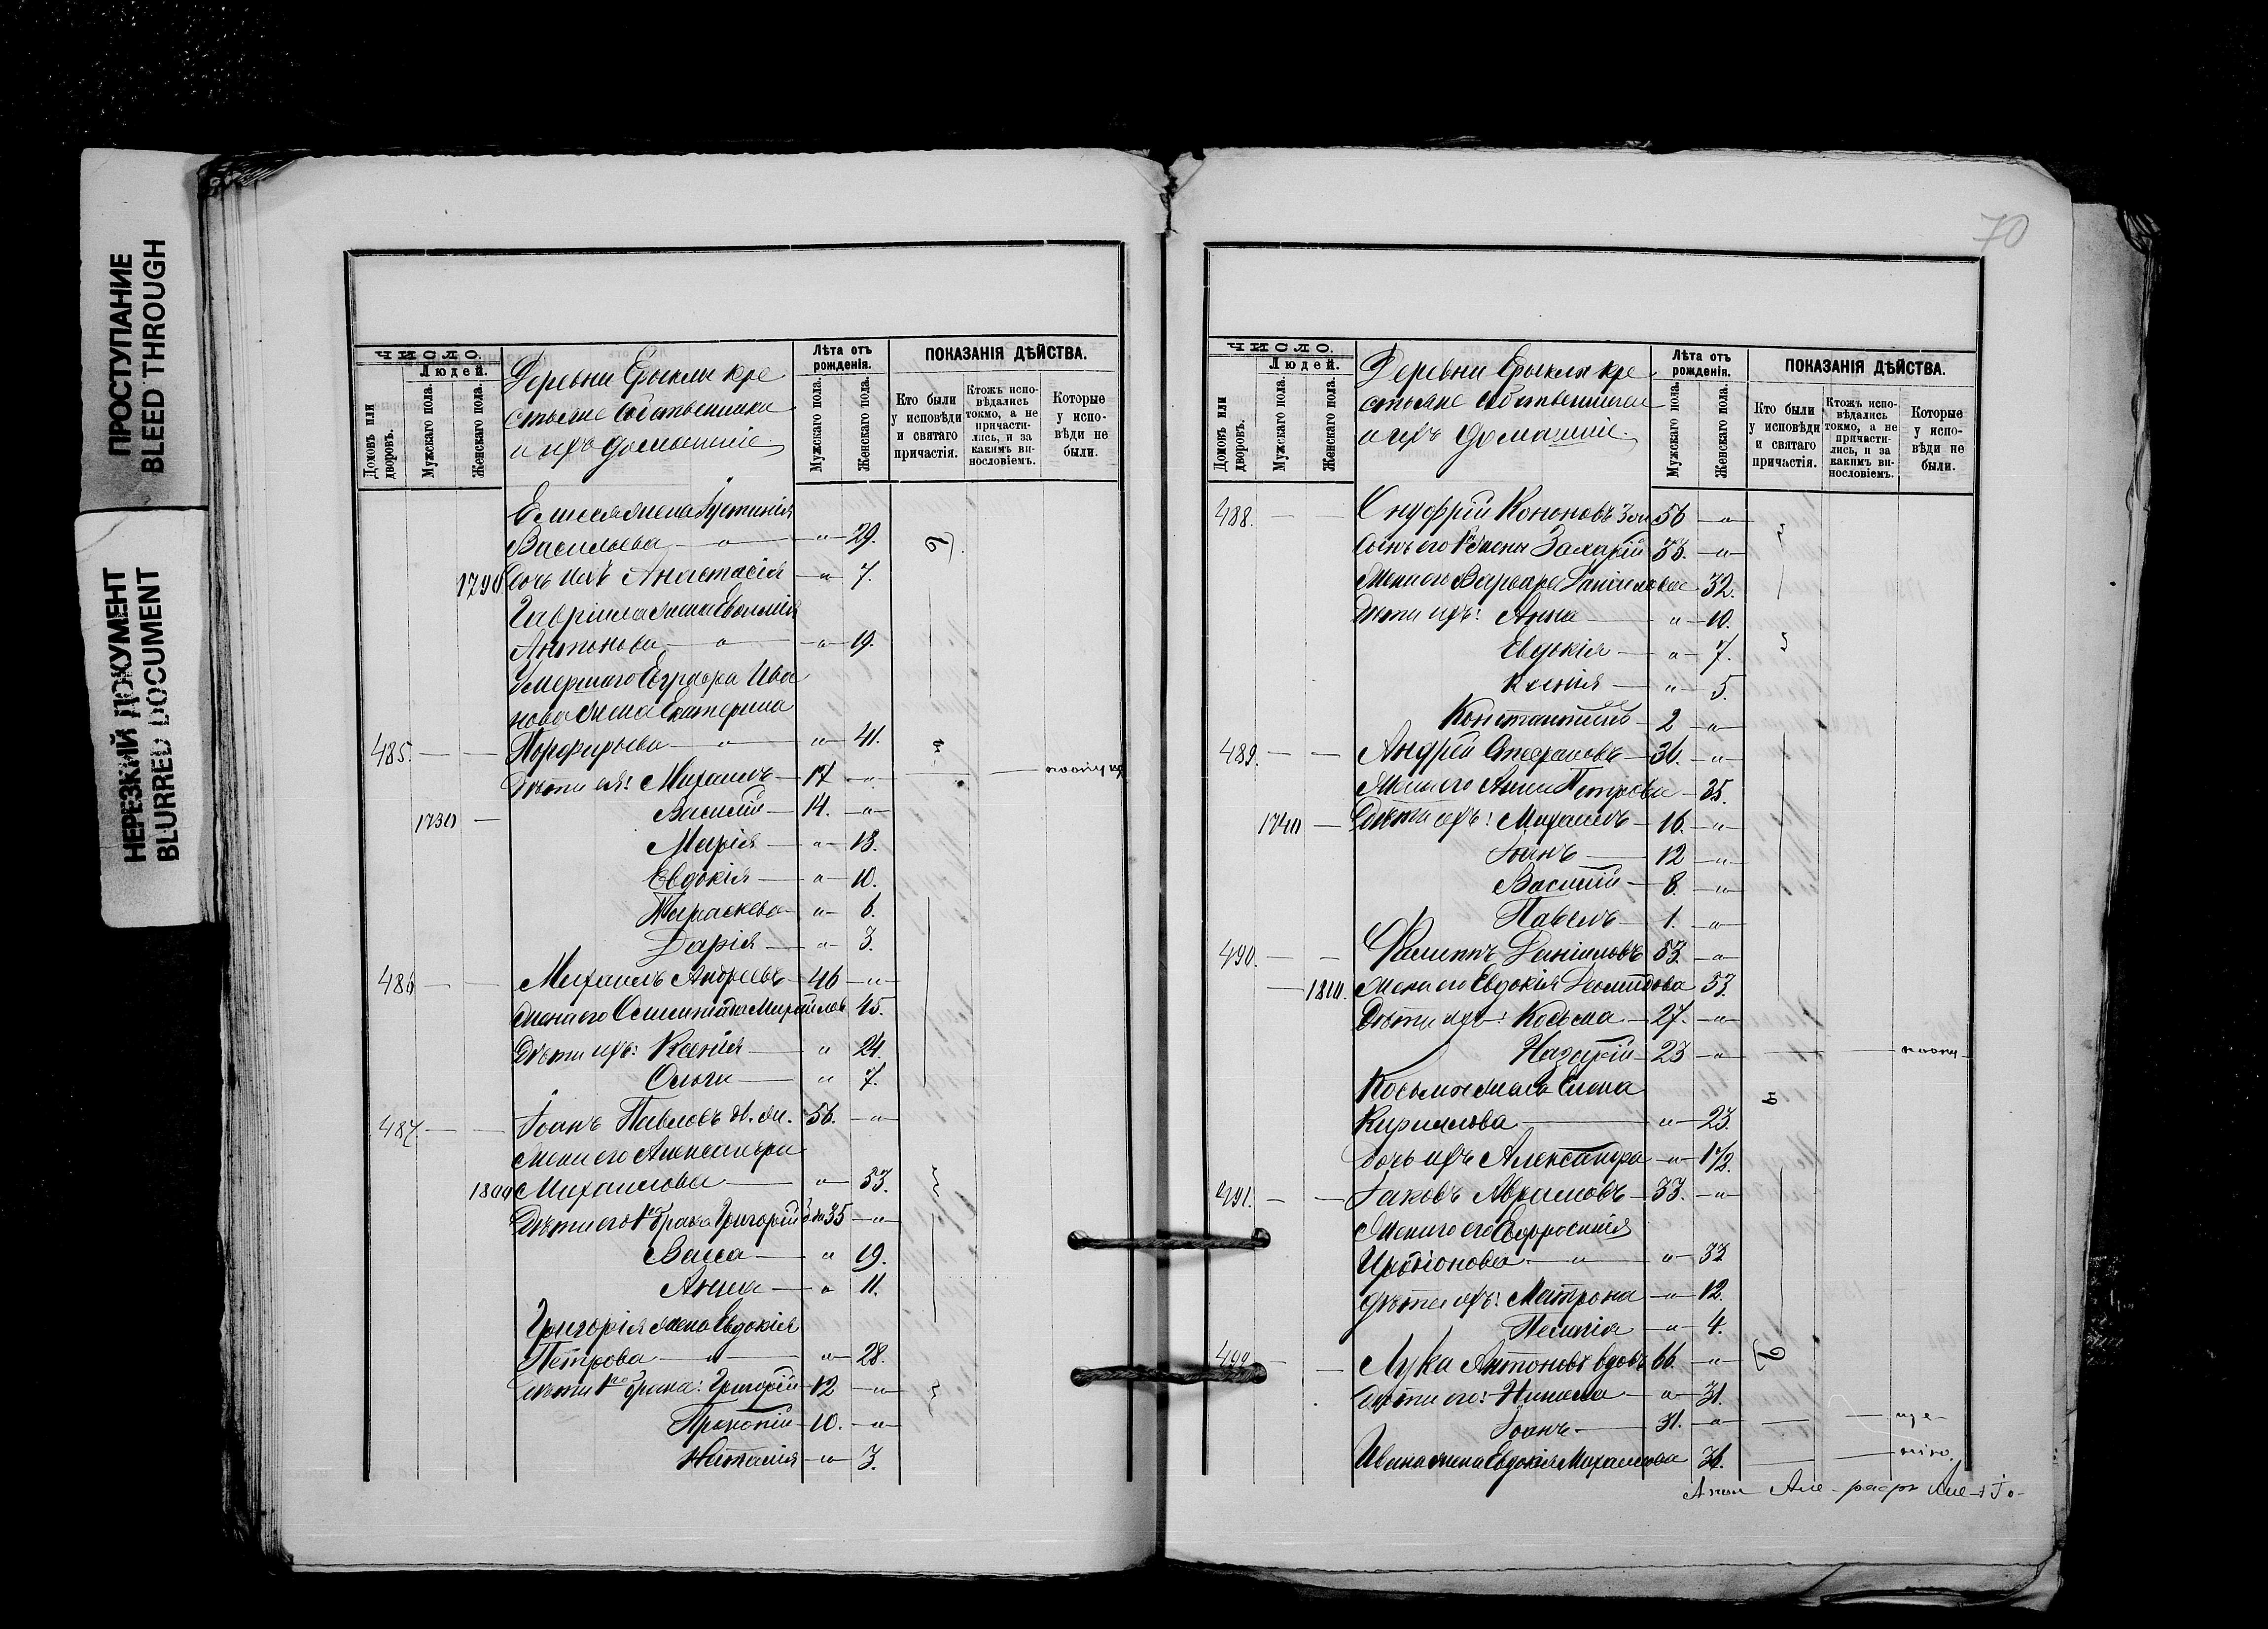 ПРОСТУПАНИЕ
BLEED THROUGH
НЕРЕЗКИЙ ДОКУМЕНТ
BLURRED DOCUMENT
ЧИСЛО.
Людей.
Домовъ или дворовъ.
Мужскаго пола.
Женскаго пола.
Деревни Ерыклы кре
стьяне собственники
и ихъ домашніе
Лѣта отъ рожденія.
Мужскаго пола.
Женскаго пола.
ПОКАЗАНІЯ ДѢЙСТВА.
Кто были у исповѣди и святаго причастія.
Ктожъ исповѣдались токмо, а не причастились, и за какимъ винословіемъ.
Которые у исповѣди не были.
Елисея жена Іустинія
Васильева " " 29.
1790 Дочь ихъ Анастасія " 7.
Гавріила жена Евфимія
Антонова " " 19.
Умершаго Евграфа Ива
нова жена Екатерина
485. Порфирьева " " 41.
Дѣти ея: Михаилъ 17 "
1730 Василій 14. "
Марія " 13.
Евдокія " 10.
Параскева " 6.
Дарія " 3.
486 Михаилъ Андреевъ 46 "
Жена его 45.
Дѣти ихъ: Ксенія " 24.
Ольга " 7.
487 Іоанъ Павловъ 56. "
Жена его Александра
1800 Михаилова " 53.
Дѣти его 1го брака Григорій 35 "
Васса " 19.
Анна " 11.
Григорія жена Евдокія
Петрова " " 28.
Дѣти 1го брака: Григорій 12 "
Прокопій 10. "
Наталія " 3.
70
ЧИСЛО.
Людей.
Домовъ или дворовъ.
Мужскаго пола.
Женскаго пола.
Деревни Ерыклы кре
стьяне собственники
и ихъ домашніе.
Лѣта отъ рожденія.
Мужскаго пола.
Женскаго пола.
ПОКАЗАНІЯ ДѢЙСТВА.
Кто были у исповѣди и святаго причастія.
Ктожъ исповѣдались токмо, а не причастились, и за какимъ винословіемъ.
Которые у исповѣди не были.
488. Онуфрій Кононовъ 56 "
Сынъ его 1й жены Захарій 33. "
Жена его Варвара Даніилова 32.
Дѣти ихъ: Анна " 10.
Евдокія " 7.
Ксенія " 5.
Константинъ 2 "
489. Андрей Стефановъ 36. "
Жена его Анна Петрова 35.
1740 Дѣти ихъ: Михаилъ 16. "
Іоанъ 12 "
Василій 8. "
Павелъ 1. "
490. Филиппъ Даніиловъ 53. "
1810. Жена его Евдокія Леонидова 53.
Дѣти ихъ: Косьма 27. "
Назарій 23 "
Косьмы жена Елена
Кириллова " 23.
Дочь ихъ Александра " 1 1/2.
491. Іаковъ Аврамовъ 33. "
Жена его Евфросинія
Иродіонова " " 32
Дѣти ихъ: Матрона " 12.
Пелагія " 4.
492 Лука Антоновъ вдовъ 66. "
Дѣти его: " 31.
Іоанъ 31. "
Ивана жена Евдокія Михаилова 31.